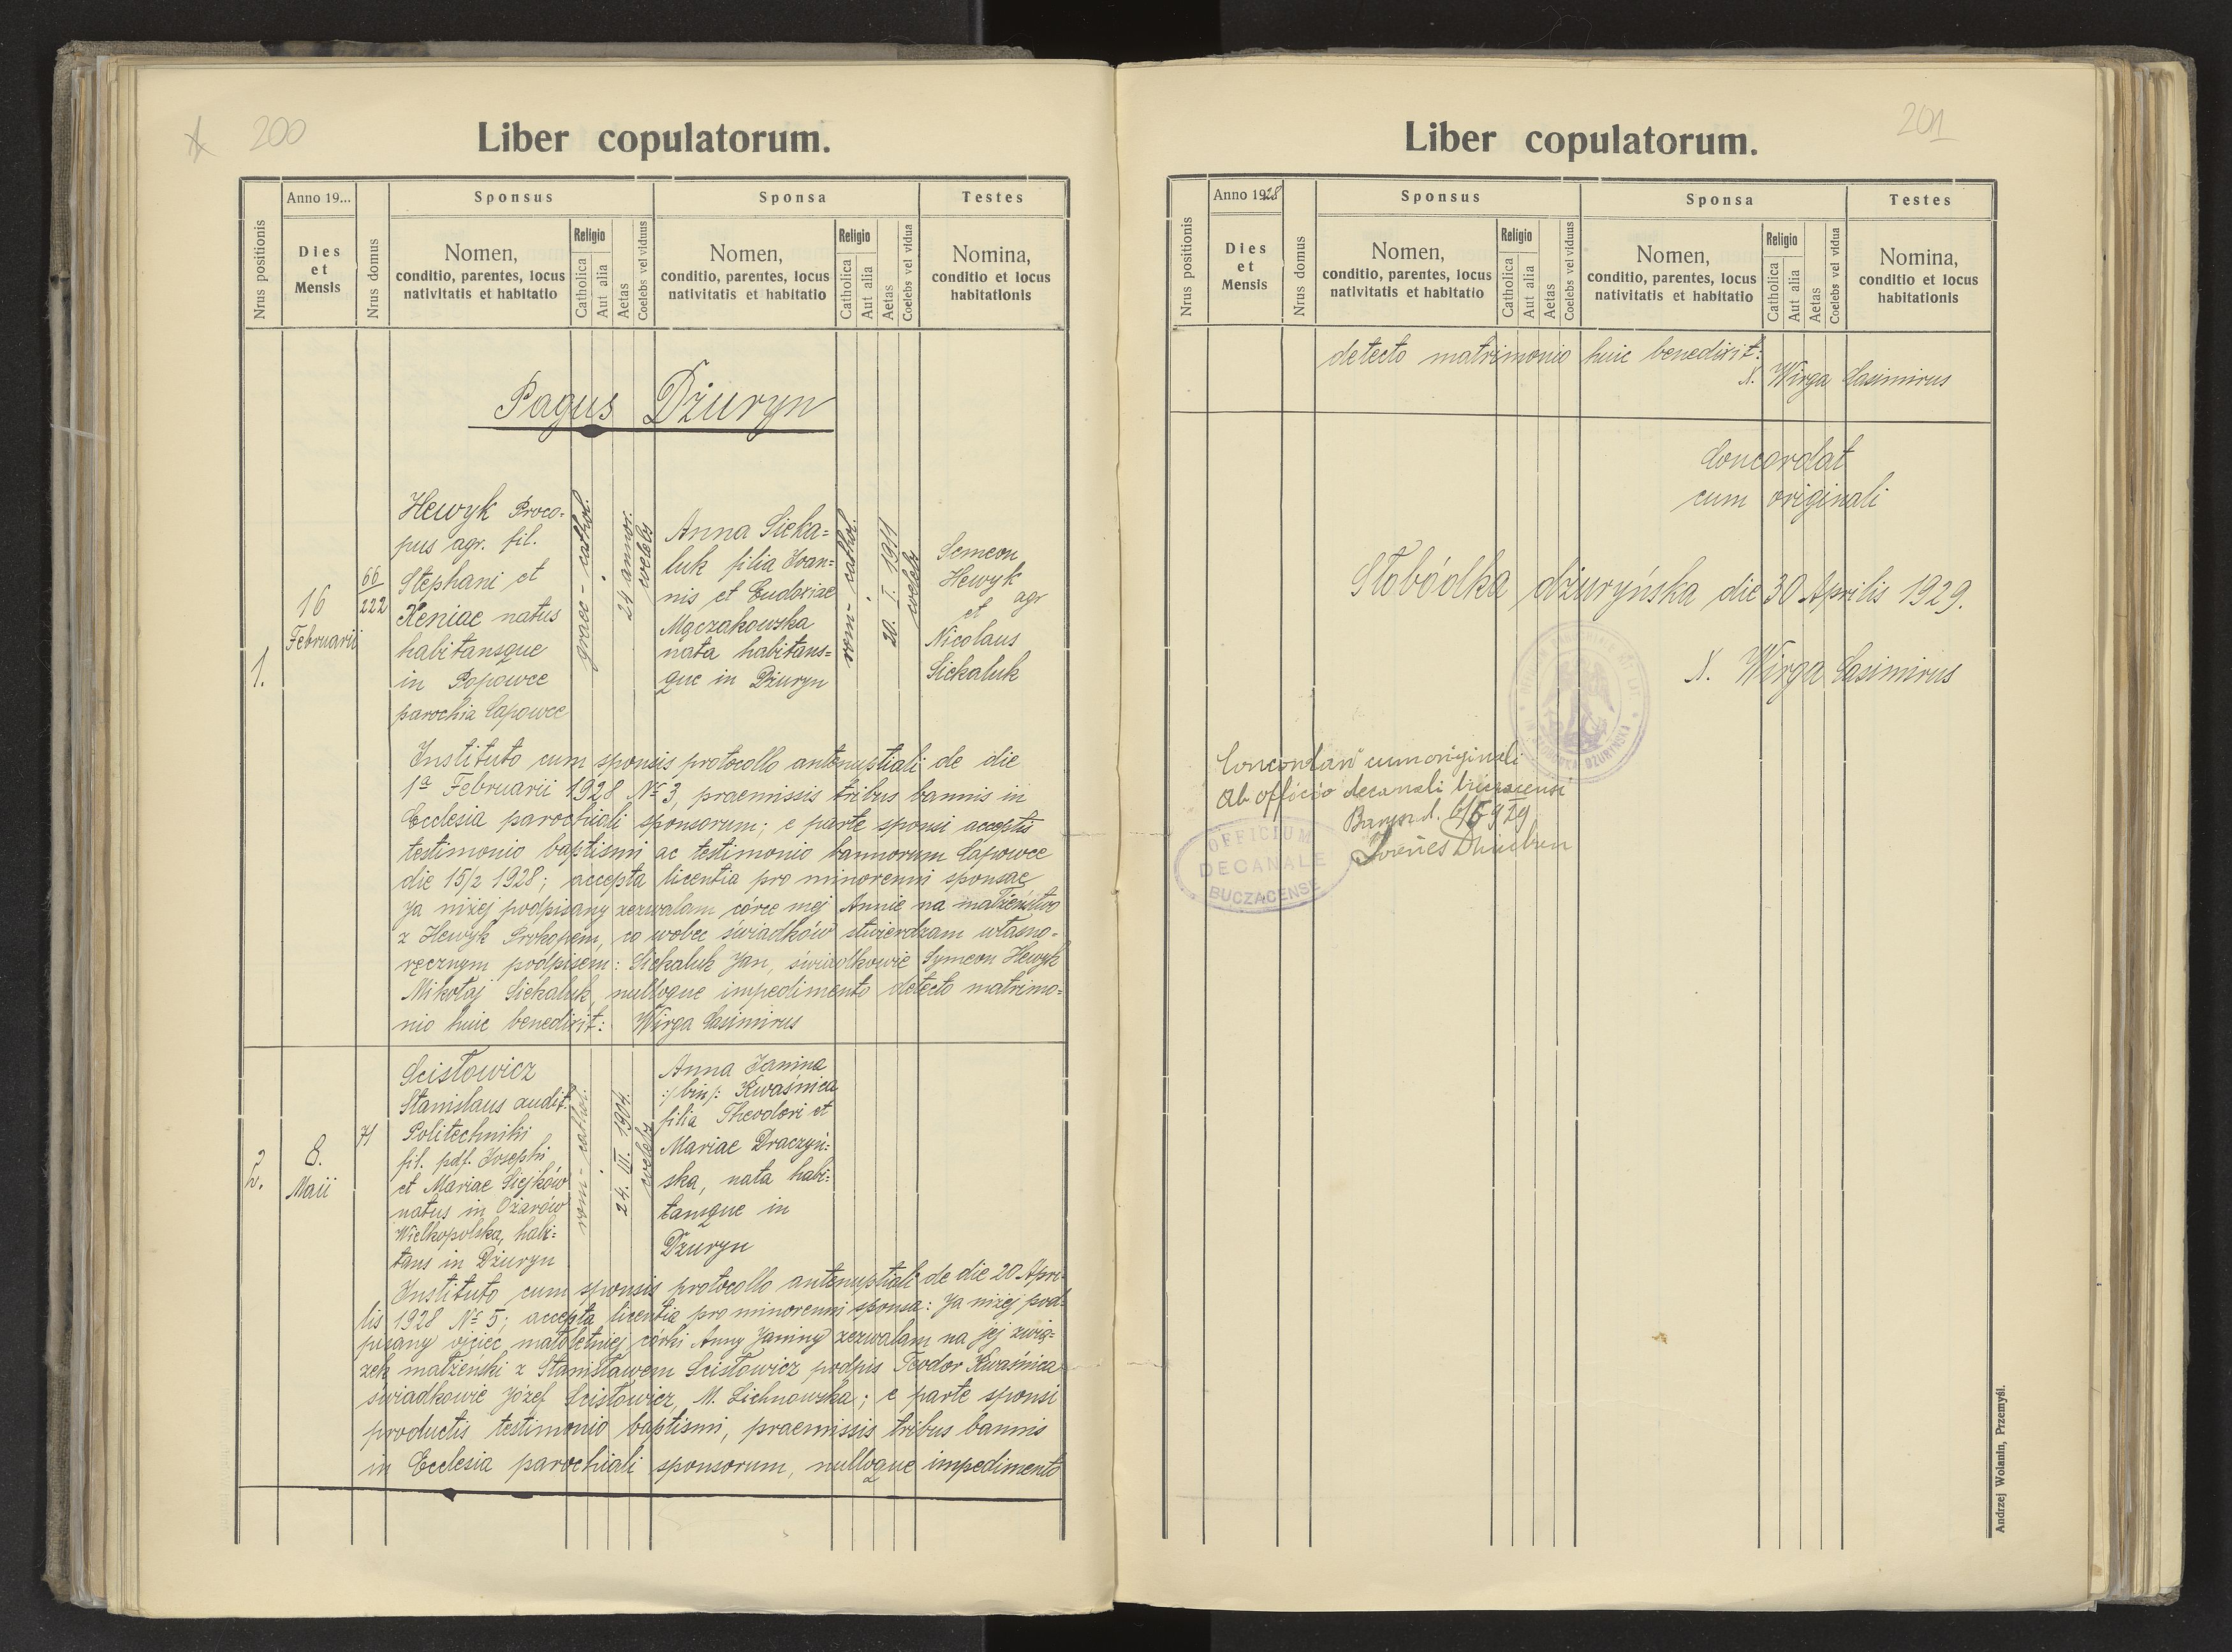 200
Liber copulatorum.
Nrus positionis
Anno 19...
Dies
et
Mensis
Nrus domus
Sponsus
Nomen,
conditio, parentes, locus
nativitatis et habitatio
Religio
Catholica
Aut alia
Aetas
Coelebs vel viduus
Sponsa
Nomen,
conditio, parentes, locus
nativitatis et habitatio
Religio
Catholica
Aut alia
Aetas
Coelebs vel vidua
Testes
Nomina,
conditio et locus
habitationis
Pagus Dżuryn
1.
16
Februarii
66
222
Hewyk Proco-
pus agr. fil.
Stephani et
Xeniae natus
habitansque
in Popowce
parochia Capowce
graec-cathol.
24 annor.
coelebs
Anna Sieka=
luk filia Joan=
nis et Eudoxiae
Mączakowska
nata habitans=
que in Dżuryn
rom-cathol.
20. I. 1911
coelebs
Semeon
Hewyk
et agr
Nicolaus
Siekaluk
Instituto cum sponsis protocollo antenuptiali de die
1ª Februarii 1928 № 3, praemissis tribus bannis in
Ecclesia parochiali sponsorum; e parte sponsi acceptis
testimonio baptismi ac testimonio bannorum Capowce
die 15/2 1928; accepta licentia pro minorenni sponsae
Ja niżej podpisany zezwalam córce mej Annie na małżeństwo
z Hewyk Prokopem, co wobec świadków stwierdzam własno-
ręcznym podpisem: Siekaluk Jan, świadkowie Symeon Hewyk
Mikołaj Siekaluk, nulloque impedimento detecto matrimo=
nio huic benedixit: Wirga Casimirus
2.
8.
Maii
71
Scisłowicz
Stanislaus audit.
Politechniki
fil. pdf. Josephi
et Mariae Siejków
natus in Ożarów
Wielkopolska, habi=
tans in Dżuryn
rom-cathol.
24. III. 1904.
coelebs
Anna Janina
:/bin/: Kwaśnica
filia Theodori et
Mariae Draczyń=
ska, nata habi=
tansque in
Dżuryn
Instituto cum sponsis protocollo antenuptiali de die 20 Apri-
lis 1928 № 5; accepta licentia pro minorenni sponsa: Ja niżej pod=
pisany ojciec małoletniej córki Anny Janiny zezwalam na jej zwią=
zek małżeński z Stanisławem Scisłowicz podpis Teodor Kwaśnica
świadkowie Józef Scisłowicz, M. Lichnowska; e parte sponsi
productis testimonio baptismi, praemissis tribus bannis
in Ecclesia parochiali sponsorum, nulloque impedimento
201
Liber copulatorum.
Nrus positionis
Anno 1928
Dies
et
Mensis
Nrus domus
Sponsus
Nomen,
conditio, parentes, locus
nativitatis et habitatio
Religio
Catholica
Aut alia
Aetas
Coelebs vel viduus
Sponsa
Nomen,
conditio, parentes, locus
nativitatis et habitatio
Religio
Catholica
Aut alia
Aetas
Coelebs vel vidua
Testes
Nomina,
conditio et locus
habitationis
detecto matrimonio huic benedixit:
X. Wirga Casimirus
Concordat
cum originali
Słobódka dżuryńska die 30 Aprilis 1929.
X. Wirga Casimirus
cum originali
Ab officio decanali
OFFICIUM
DECANALE
BUCZACENSE
Andrzej Wolanin, Przemyśl.